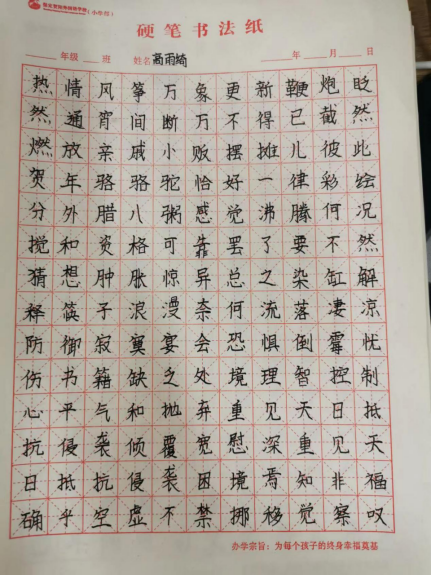 (小学部)
硬笔书法纸
年级 班 姓名 高雨绮 年 月 日
热情风筝万象更新鞭炮眨
然通宵间断万不得已截然
燃放亲戚小贩摆摊儿彼此
贺年骆骆驼怡好一律彩绘
分外腊八粥感觉沸腾何况
搅和资格可靠罢了要不然
猜想肿胀惊异总之染缸解
释筷子浪漫奈何流落凄凉
防御寂寞宴会恐惧倒霉忧
伤书籍缺乏处境理智控制
心平气和抛弃重见天日抵
抗侵袭倾覆宽慰深重见天
日抵抗侵袭困境焉知非福
确乎空虚不禁挪移觉察叹
办学宗旨：为每个孩子的终身幸福奠基